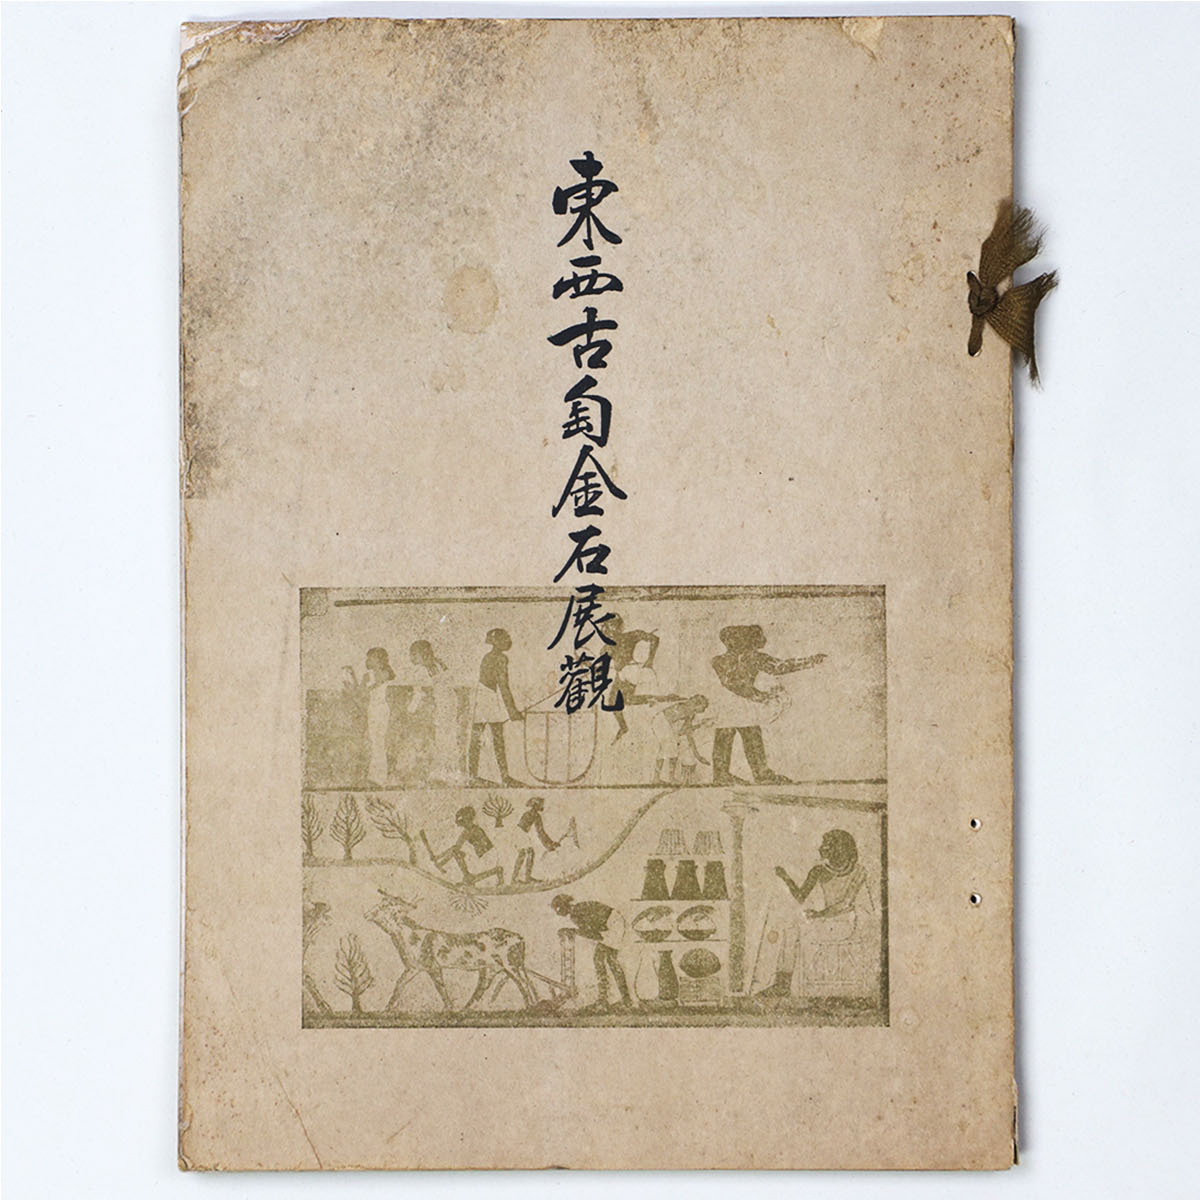 東西古匋金石展觀